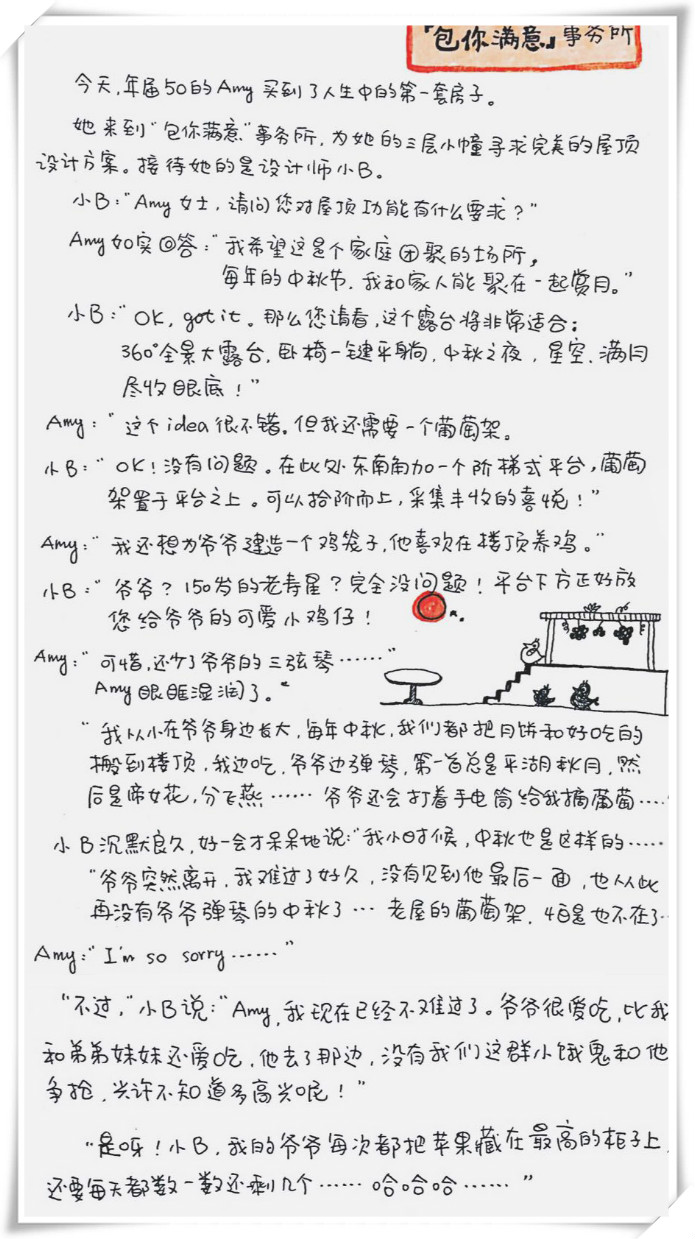 『包你满意』事务所
今天,年届50的Amy 买到了人生中的第一套房子。
她来到"包你满意"事务所,为她的三层小幢寻求完美的屋顶
设计方案。接待她的是设计师小B。
小B:"Amy 女士,请问您对屋顶功能有什么要求?"
Amy如实回答:"我希望这是个家庭团聚的场所,
每年的中秋节,我和家人能聚在一起赏月。"
小B:"OK, got it。那么您请看,这个露台将非常适合:
360°全景大露台,卧椅一键平躺,中秋之夜,星空、满月
尽收眼底!"
Amy:"这个idea很不错。但我还需要一个葡萄架。
小B:"OK!没有问题。在此处东南角加一个阶梯式平台,葡萄
架置于平台之上。可以拾阶而上,采集丰收的喜悦!"
Amy:"我还想为爷爷建造一个鸡笼子,他喜欢在楼顶养鸡。"
小B:"爷爷?150岁的老寿星?完全没问题!平台下方正好放
您给爷爷的可爱小鸡仔!
Amy:"可惜,还少了爷爷的三弦琴……"
Amy眼眶湿润了。"
"我从小在爷爷身边长大,每年中秋,我们都把月饼和好吃的
搬到楼顶,我边吃,爷爷边弹琴,第一首总是平湖秋月,然
后是帝女花,分飞燕……爷爷还会打着手电筒给我摘葡萄…
小B沉默良久,好一会才呆呆地说:"我小时候,中秋也是这样的……
"爷爷突然离开,我难过了好久,没有见到他最后一面,也从此
再没有爷爷弹琴的中秋了…老屋的葡萄架,也不在了…
Amy:"I'm so sorry……"
"不过,"小B说:"Amy,我现在已经不难过了。爷爷很爱吃,比我
和弟弟妹妹还爱吃,他去了那边,没有我们这群小饿鬼和他
争抢,兴许不知道多高兴呢!"
"是呀!小B,我的爷爷每次都把苹果藏在最高的柜子上,
还要每天都数一数还剩几个……哈哈哈……"